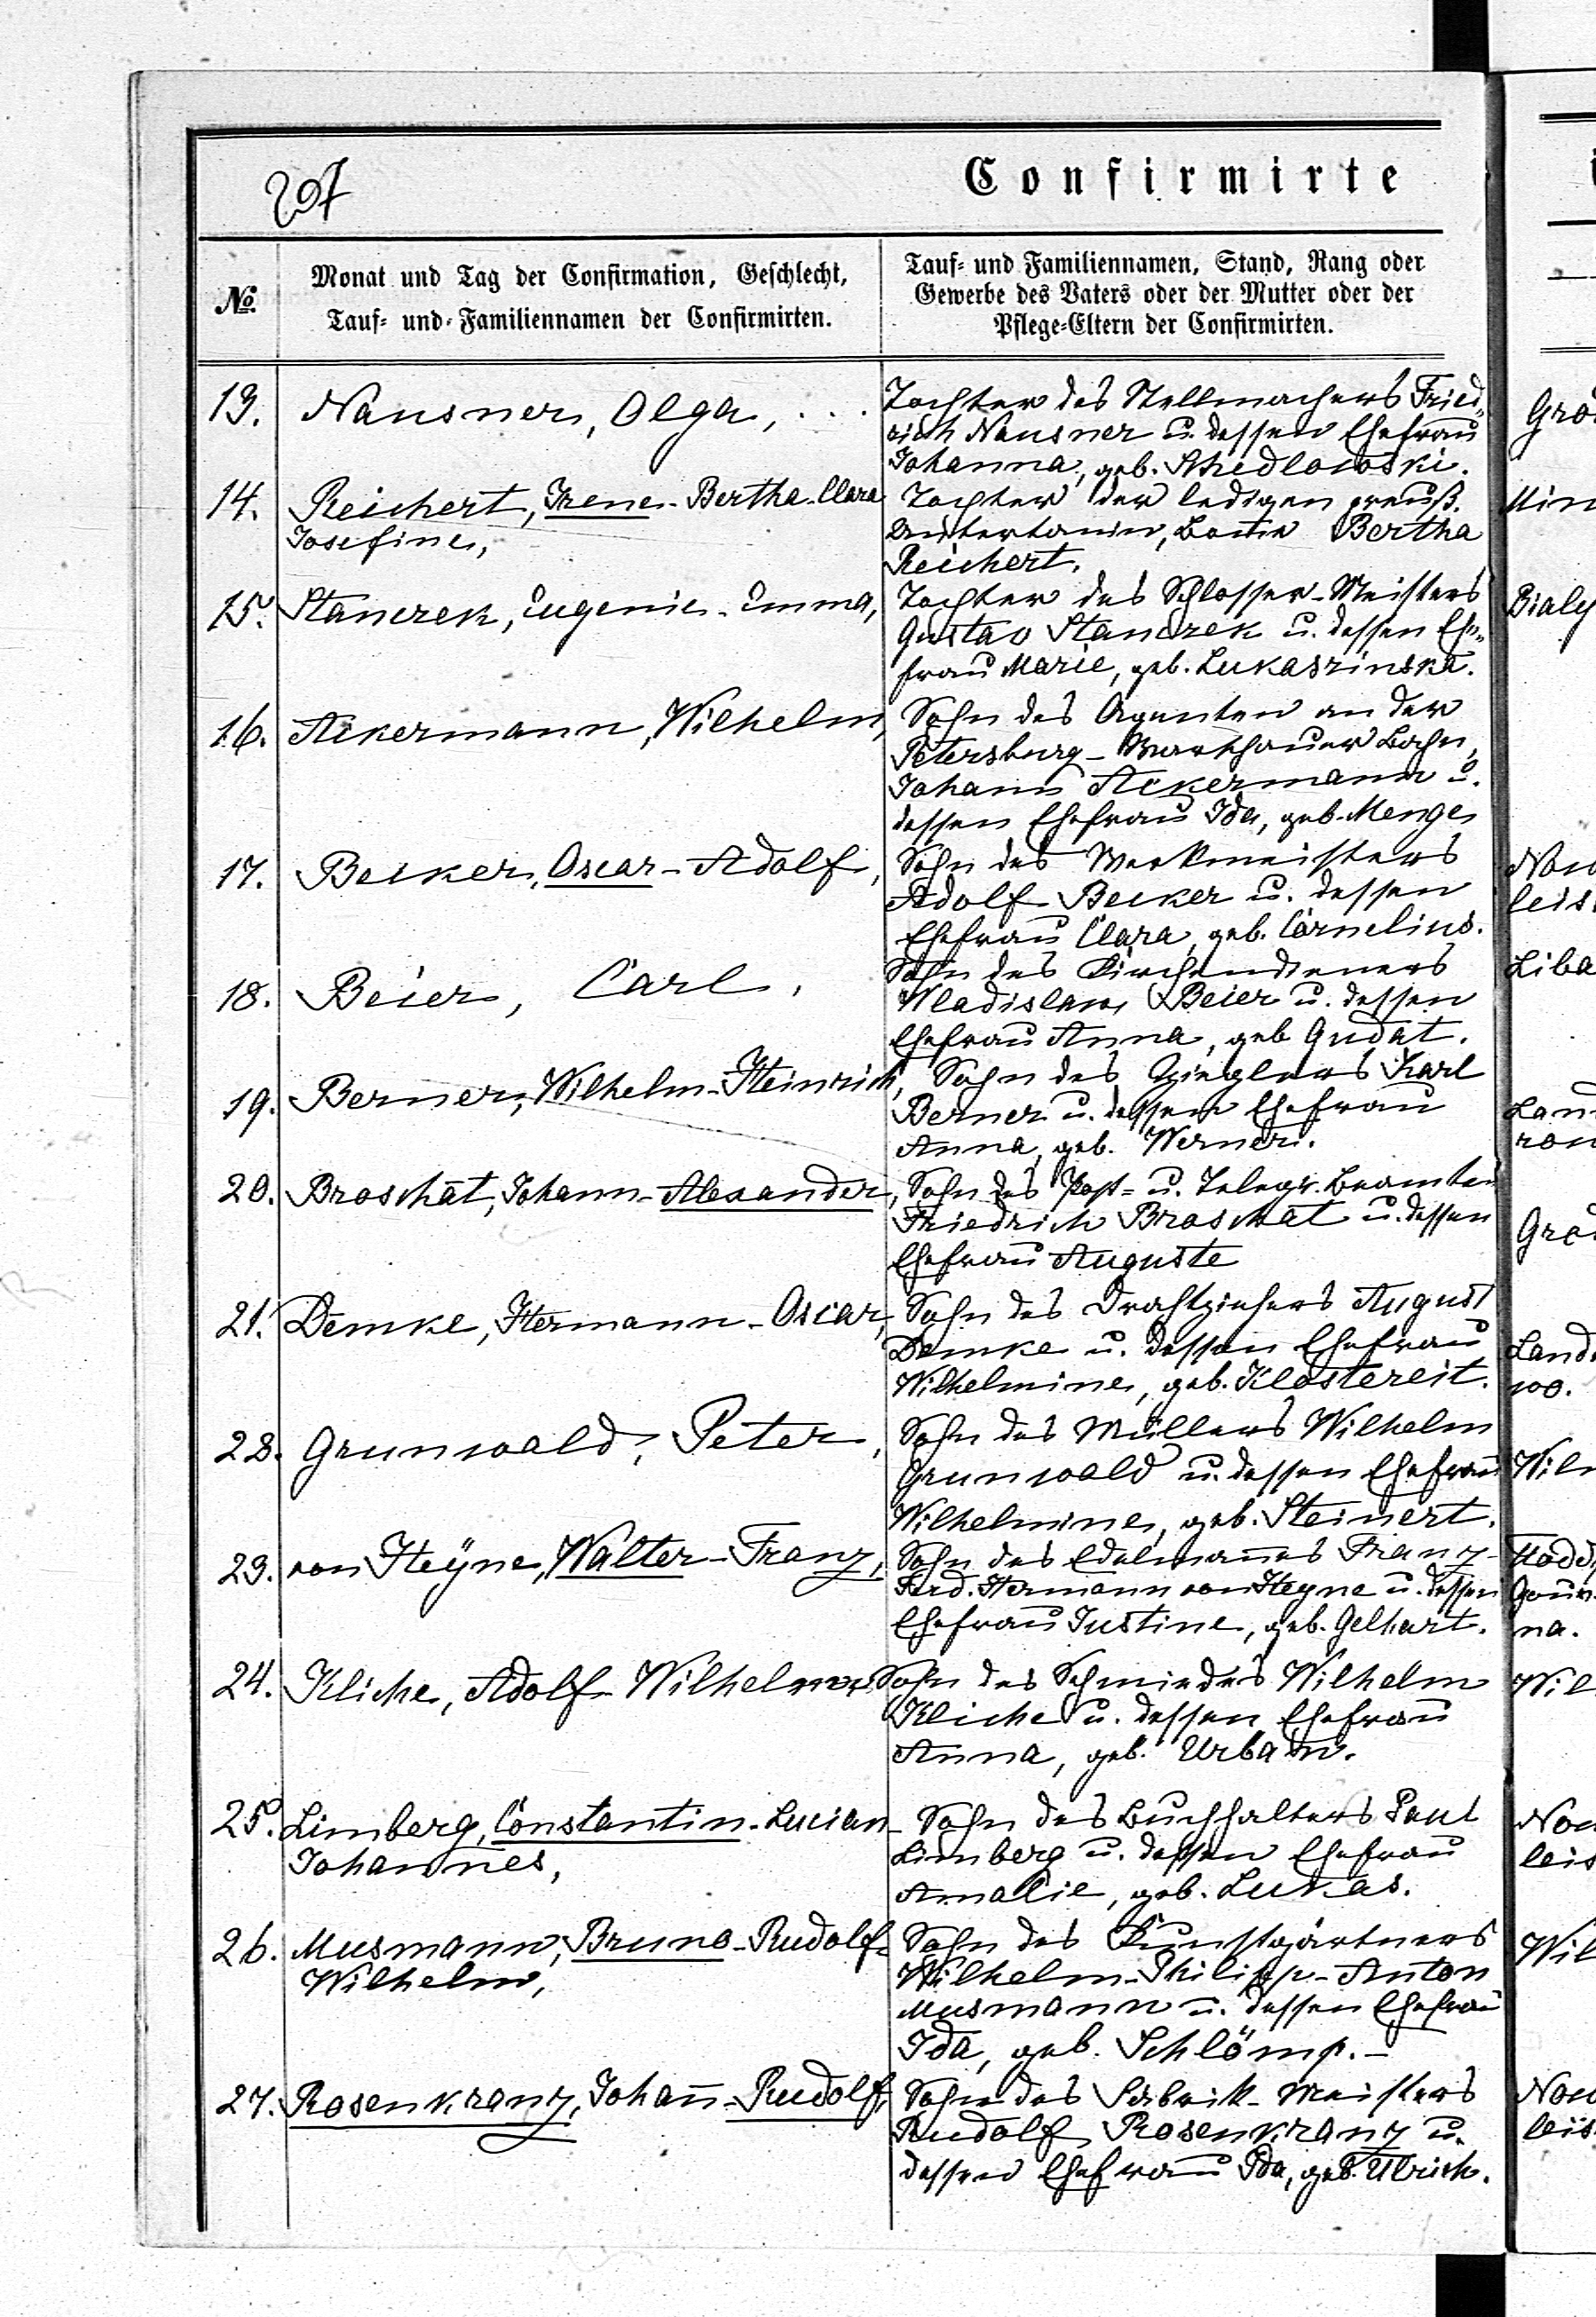 297
Confirmirte
№
Monat und Tag der Confirmation, Geschlecht,
Tauf- und Familiennamen der Confirmirten.
Tauf- und Familiennamen, Stand, Rang oder
Gewerbe des Vaters oder der Mutter oder der
Pflege-Eltern der Confirmirten.
13. Nausner, Olga, . . .
Tochter des Stellmachers Fried-
rich Nausner u. dessen Ehefrau
Johanna, geb. Schedlowski.
14. Reichert, Irene-Bertha-Clara
Josefine,
Tochter der ledigen preuß.
Untertanin, Bonne Bertha
Reichert.
15. Stanczek, Eugenie-Emma,
Tochter des Schlosser-Meisters
Gustav Stanczek u. dessen Ehe-
frau Marie, geb. Lukaszinska.
16. Ackermann, Wilhelm,
Sohn des Agenten an der
Petersburg-Warschauer Bahn,
Johann Ackermann u.
dessen Ehefrau Ida, geb. Menge
17. Becker, Oscar-Adolf,
Sohn des Werkmeisters
Adolf Becker u. dessen
Ehefrau Clara, geb. Cornelius.
18. Beier, Carl,
Sohn des Kirchendieners
Wladislaw Beier u. dessen
Ehefrau Anna, geb Gudat.
19. Berner, Wilhelm-Heinrich,
Sohn des Zieglers Karl
Berner u. dessen Ehefrau
Anna, geb. Werner.
20. Broschat, Johann-Alexander,
Sohn des Post- u. Telegr. Beamten
Friedrich Broschat u. dessen
Ehefrau Auguste
21. Demke, Hermann-Oscar,
Sohn des Drahtziehers August
Demke u. dessen Ehefrau
Wilhelmine, geb. Klostereit.
22. Grunwald, Peter,
Sohn des Müllers Wilhelm
Grunwald u. dessen Ehefrau
Wilhelmine, geb. Steinert.
23. von Heyne, Walter-Franz,
Sohn des Edelmannes Franz-
Ferd. Hermann von Heyne u. dessen
Ehefrau Justine, geb. Gelhart.
24. Kliche, Adolf-Wilhelm,
Sohn des Schmiedes Wilhelm
Kliche u. dessen Ehefrau
Anna, geb. Urban.
25. Limberg, Constantin-Lucian-
Johannes,
Sohn des Buchhalters Paul
Limberg u. dessen Ehefrau
Amalie, geb. Lukas.
26. Musmann, Bruno-Rudolf-
Wilhelm,
Sohn des Kunstgärtners
Wilhelm-Philipp-Anton
Musmann u. dessen Ehefrau
Ida, geb. Schlömp.-
27. Rosenkranz, Johann-Rudolf,
Sohn des Fabrik-Meisters
Rudolf Rosenkranz u.
dessen Ehefrau Ida, geb. Ulrich.